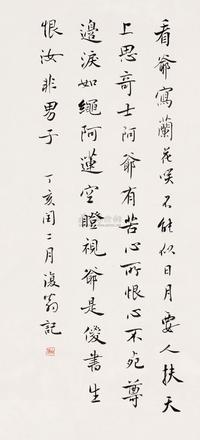 看爺寫蘭花咲不能似日月要人扶天
上思奇士阿爺有苦心所恨心不死尊
邊淚如繩阿蓮空瞪視爺是儍書生
恨汝非男子 丁亥閏二月復翁記